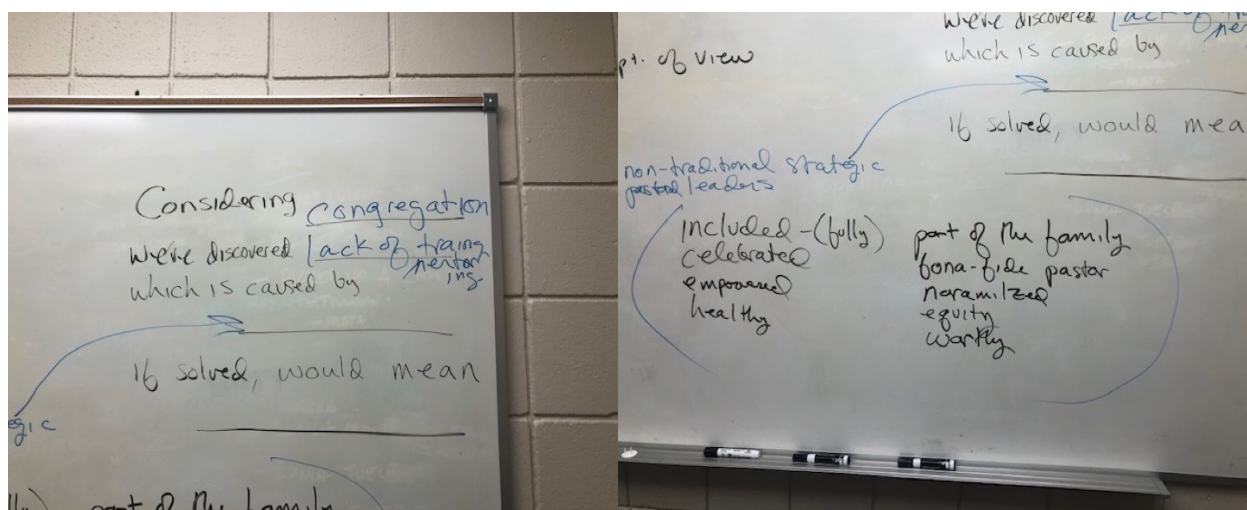 Considering congregation
we've discovered lack of traing
mentor
ing
which is caused by
If solved, would mean
egic
lly) part of the family
we've discovered lack of
which is caused by
pt. of view
If solved, would mea
non-traditional strategic
pastoral leaders
included-(fully)
celebrated
empowered
healthy
part of the family
bona-fide pastor
noramilzed
equity
worthy